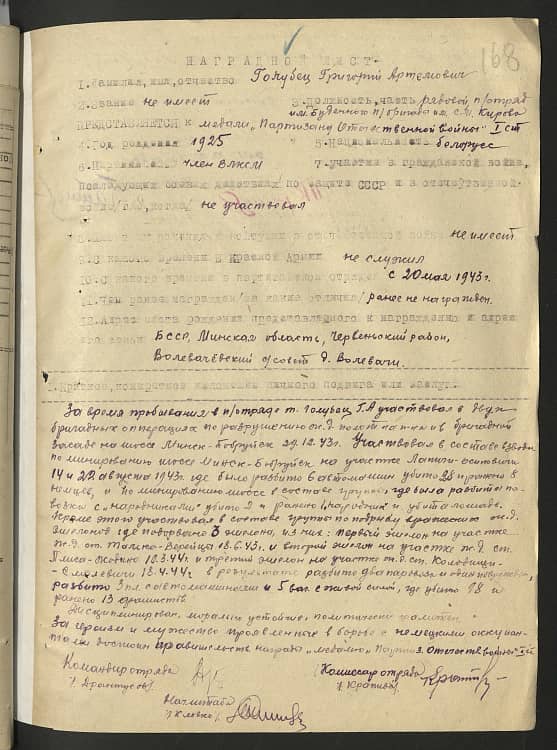 168
НАГРАДНОЙ ЛИСТ
1. Фамилия, имя, отчество Голубец Григорий Артемович
2. Звание не имеет 3. Должность, часть рядовой, п/отряд
им. Буденного п/бригада им. С.М. Кирова
ПРЕДСТАВЛЯЕТСЯ к медали „Партизану Отечественной войны" I ст
4. Год рождения 1925 5. Национальность белорусс
6. член ВЛКСМ 7. участие в гражданской войне,
последующих боевых действиях по защите СССР и в отечественной
войне /где, когда/ не участвовал
не имеет
9. С какого времени в Красной Армии не служил
10. С какого времени в партизанском отряде с 20 мая 1943 г.
11. Чем ранее награжден /за какие отличия/ ранее не награжден.
12. Адрес места рождения представляемого к награждению и адрес
его семьи БССР, Минская область, Червеньский район,
Волевачёвский с/совет д. Волевачи.
1. Краткое, конкретное изложение личного подвига или заслуг.
За время пребывания в п/отряде т. Голубец Г.А участвовал в двух
бригадных операциях по разрушению ж.д. полотна и в бригадной
засаде на шоссе Минск-Бобруйск 29.12.43г. Участвовал в составе взвода
по минированию шоссе Минск-Бобруйск на участке
14 и августа 1943г. где было разбито 6 автомашин убито 28 и ранено 8
немцев, и по минированию шоссе в составе группы, где была разбита по-
возка с „народниками" убито 2 и ранен 1 народник и убита лошадь.
Кроме этого участвовал в составе группы по подрыву вражеских ж.д.
эшелонов где подорвано 3 эшелона, из них: первый эшелон на участке
ж.д. ст. Талька-Верейцы 18.6.43г. и второй эшелон на участке ж.д. ст.
18.3.44г. и третий эшелон на участке ж.д. ст.
- Смолевичи 18.4.44г. в результате разбито два паровоза и один поврежден,
разбито 3 пл. с автомашинами и 5 ваг. с живой силой, где убито 18 и
ранено 13 фашистов.
Дисциплинирован, морально устойчив, политически грамотен.
За героизм и мужество проявленные в борьбе с немецкими оккупан-
тами достоин правительств. награды „медалью" Партиз. Отечеств. войны" I ст
Командир отряда
Комиссар отряда
Нач. штаба